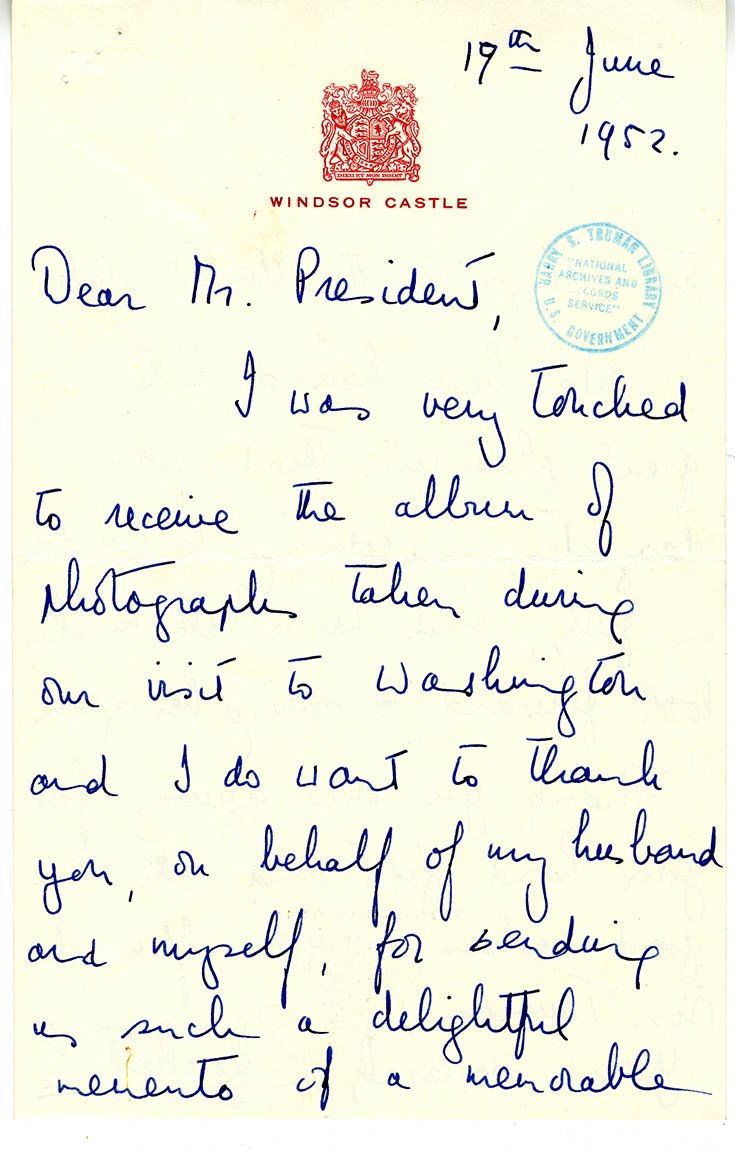 19th June
1952.
DIEU ET MON DROIT
WINDSOR CASTLE
HARRY S. TRUMAN LIBRARY
"NATIONAL
ARCHIVES AND
CORDS
SERVICE"
U.S. GOVERNMENT
Dear Mr. President,
I was very touched
to receive the album of
photographs taken during
our visit to Washington
and I do want to thank
you, on behalf of my husband
and myself, for sending
us such a delightful
memento of a memorable